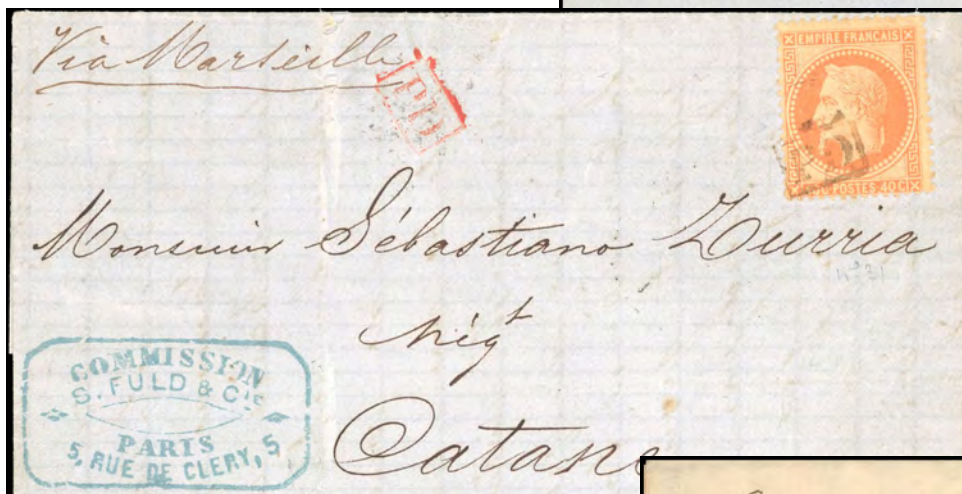 Via Marseille
PD
EMPIRE FRANCAIS
POSTES 40 C
15
Monsieur Sébastiano Zurria
Négt
Catane
COMMISSION
S. FULD & Cie
PARIS
5, RUE DE CLERY, 5